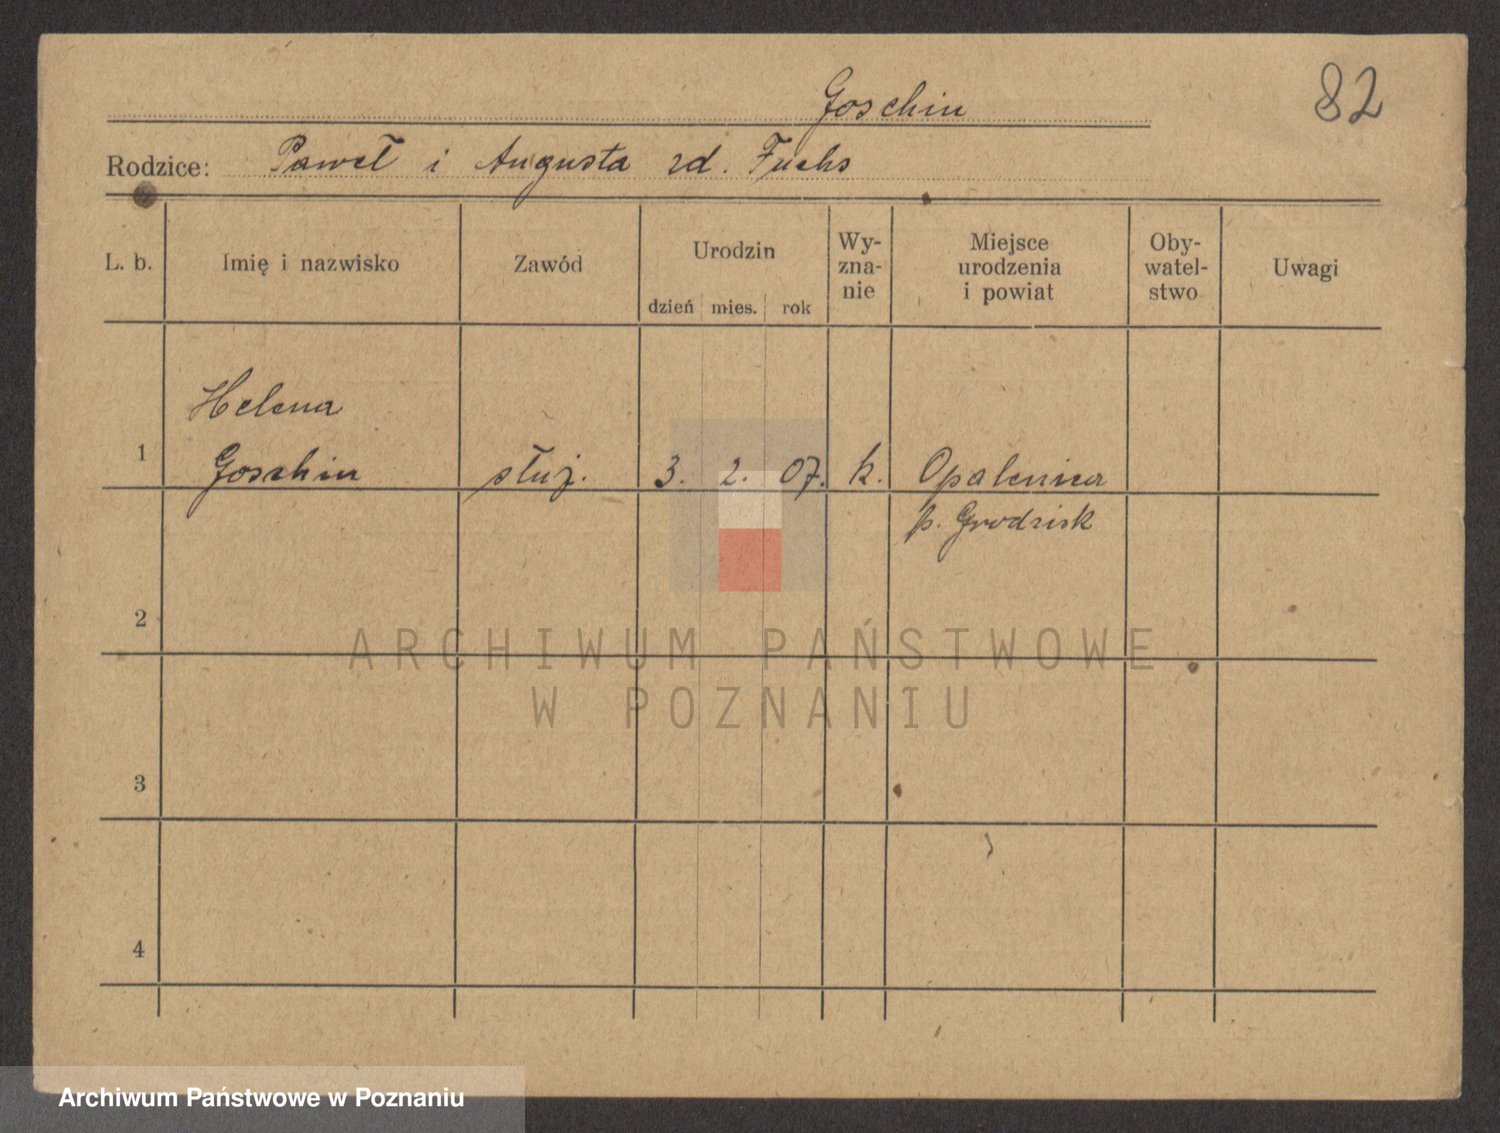 Goschin
82
Rodzice: Paweł i Augusta zd. Fuchs
L. b. Imię i nazwisko Zawód Urodzin dzień mies. rok Wy-zna-nie Miejsce urodzenia i powiat Oby-watel-stwo Uwagi
Helena
1 Goschin służ. 3. 2. 07. k. Opalenica
p. Grodzisk
2
ARCHIWUM PAŃSTWOWE
W POZNANIU
3
4
Archiwum Państwowe w Poznaniu